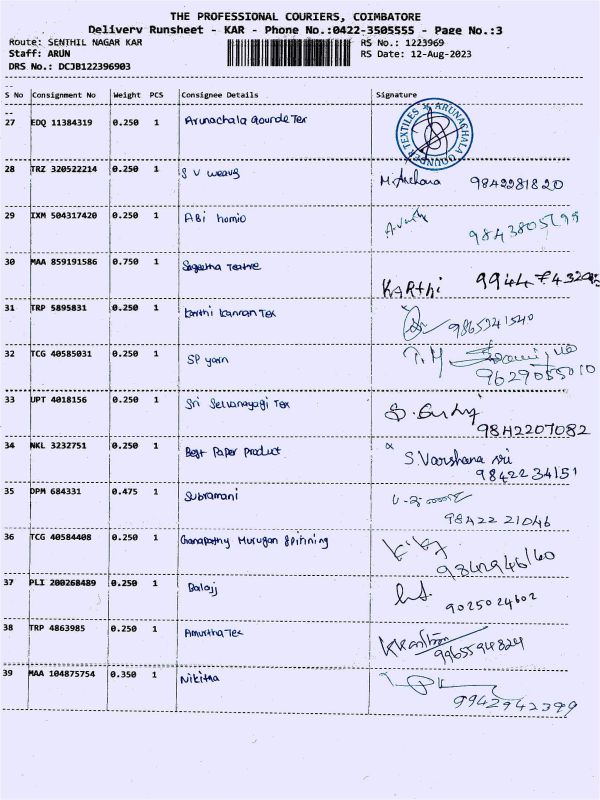 THE PROFESSIONAL COURIERS, COIMBATORE
Delivery Runsheet - KAR - Phone No.:0422-3505555 - Page No.:3
Route: SENTHIL NAGAR KAR RS No.: 1223969
Staff: ARUN RS Date: 12-Aug-2023
DRS No.: DCJB122396903
S No Consignment No Weight PCS Consignee Details Signature
27 EDQ 11384319 0.250 1 Arunachala Gounde Tex ARUNACHALA GOUNDER TEXTILES
28 TRZ 320522214 0.250 1 S V weavg M. Archana 9842281820
29 IXM 504317420 0.250 1 ABi homio
30 MAA 859191586 0.750 1 KARthi
31 TRP 5895831 0.250 1 Karthi kannan Tex 9865341540
32 TCG 40585031 0.250 1 SP yarn 9629055010
33 UPT 4018156 0.250 1 Sri Selvanayagi Tex 9842207082
34 NKL 3232751 0.250 1 Best Paper Product S. Varshana sri 9842234151
35 DPM 684331 0.475 1 Subramani 98422 21046
36 TCG 40584408 0.250 1 Ganapathy Murugan Spinning
37 PLI 200268489 0.250 1 Balajj 9025024602
38 TRP 4863985 0.250 1 Amurtha Tex 9965594824
39 MAA 104875754 0.350 1 Nikitha 9942942399